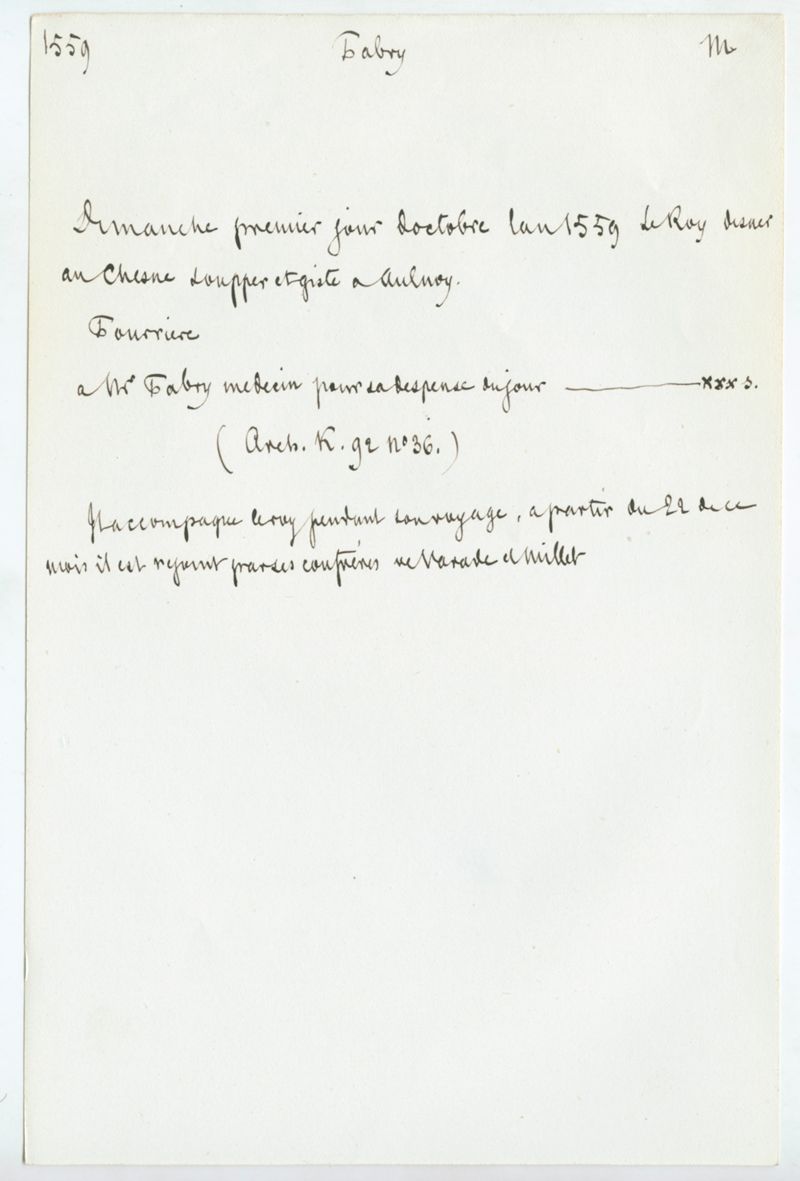 1559 Fabry M
Dimanche premier jour doctobre lan 1559 Le Roy disner
au Chesne soupper et giste a Aulnoy.
Fourriere
a Mr Fabry medecin pour sa despense du jour ——— xxx s.
(Arch. K. 92 no 36.)
Il accompagne le roy pendant son voyage, a partir du 22 de ce
mois il est rejoint par ses confrères de Varade et Millet